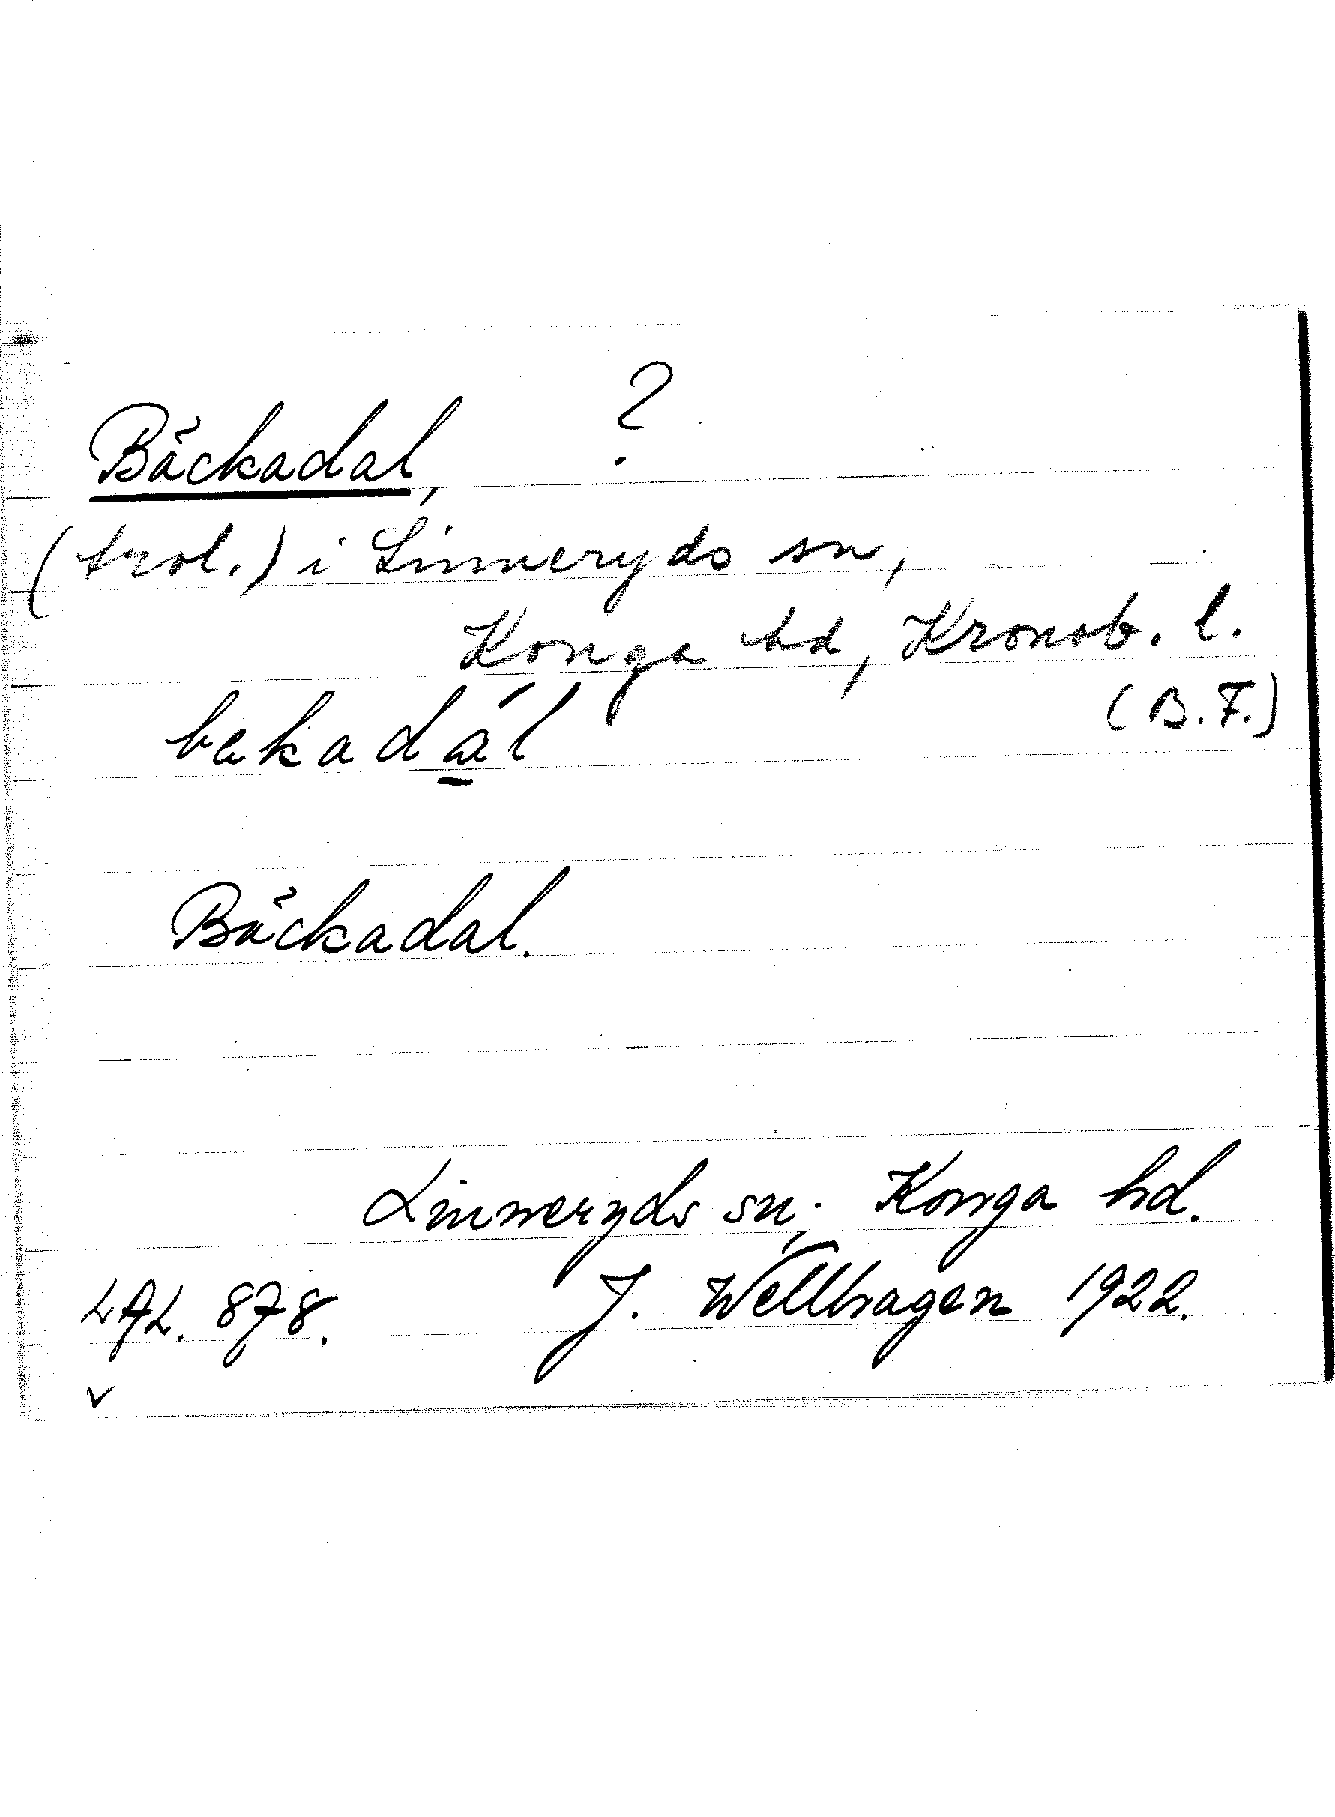 Bäckadal, ?
(trol.) i Linneryds sn,
Konga hd, Kronob. l.
(B.F.)
bekadál
Bäckadal.
Linneryds sn. Konga hd.
LAL. 878. J. Wellhagen 1922.